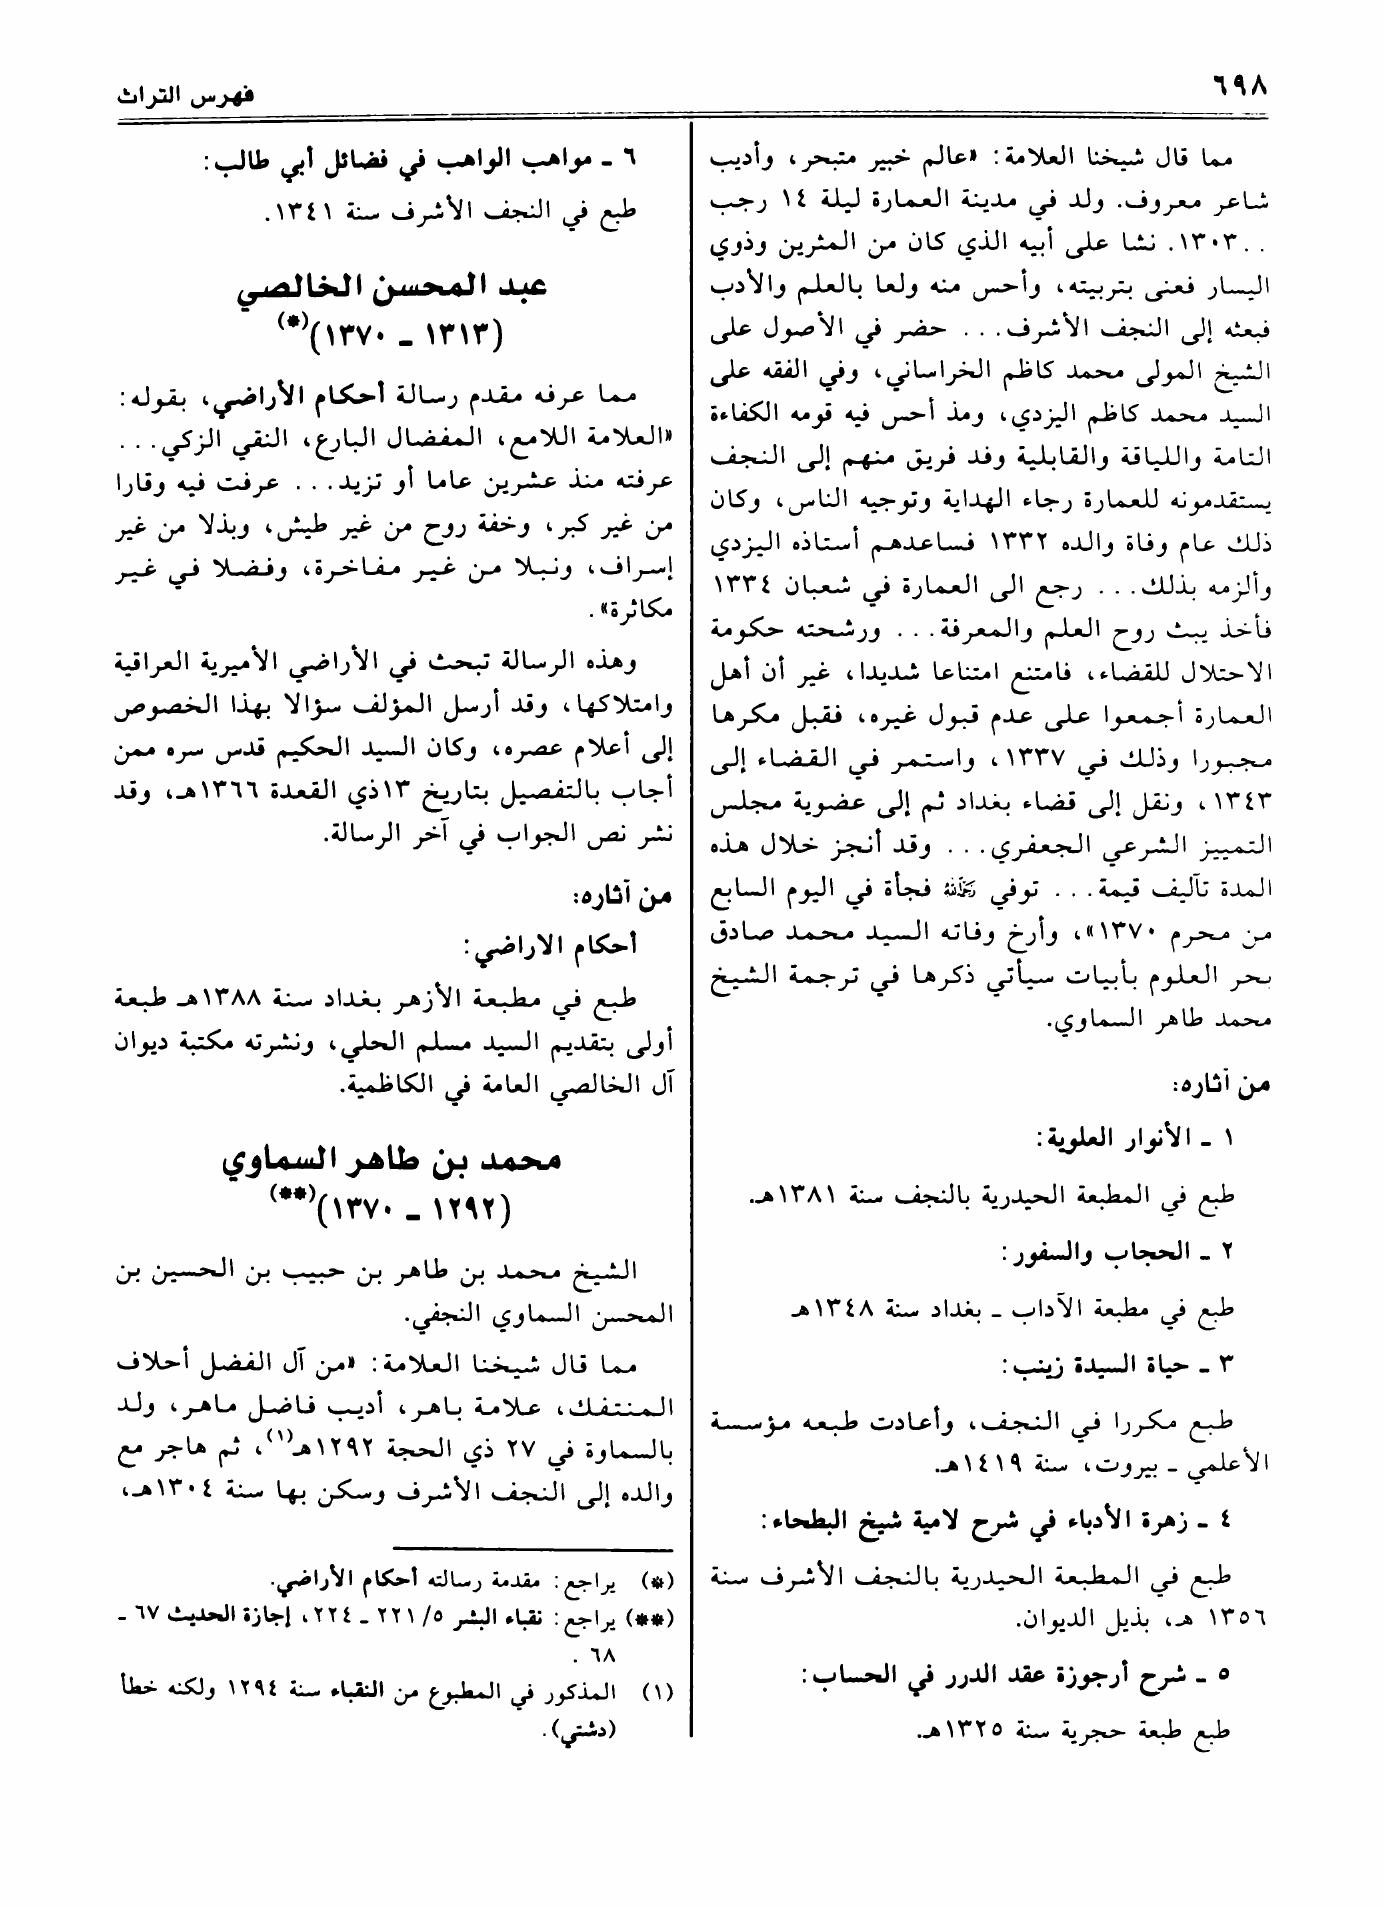 ٦٩٨
فهرس التراث
مما قال شيخنا العلامة: «عالم خبير متبحر، وأديب
شاعر معروف. ولد في مدينة العمارة ليلة ١٤ رجب
١٣٠٣. نشا على أبيه الذي كان من المثرين وذوي . .
اليسار فعنى بتربيته، وأحس منه ولعا بالعلم والأدب
فبعثه إلى النجف الأشرف... حضر في الأصول على
الشيخ المولى محمد كاظم الخراساني، وفي الفقه على
السيد محمد كاظم اليزدي، ومذ أحس فيه قومه الكفاءة
التامة واللياقة والقابلية وفد فريق منهم إلى النجف
يستقدمونه للعمارة رجاء الهداية وتوجيه الناس، وكان
ذلك عام وفاة والده ١٣٣٢ فساعدهم أستاذه اليزدي
وألزمه بذلك... رجع الى العمارة في شعبان ١٣٣٤
فأخذ يبث روح العلم والمعرفة... ورشحته حكومة
الاحتلال للقضاء، فامتنع امتناعا شديدا، غير أن أهل
العمارة أجمعوا على عدم قبول غيره، فقبل مكرها
مجبورا وذلك في ١٣٣٧، واستمر في القضاء إلى
١٣٤٣، ونقل إلى قضاء بغداد ثم إلى عضوية مجلس
التمييز الشرعي الجعفري... وقد أنجز خلال هذه
المدة تآليف قيمة... توفي رحمه الله فجأة في اليوم السابع
من محرم ١٣٧٠»، وأرخ وفاته السيد محمد صادق
بحر العلوم بأبيات سيأتي ذكرها في ترجمة الشيخ
محمد طاهر السماوي.
من آثاره:
١ ـ الأنوار العلوية:
طبع في المطبعة الحيدرية بالنجف سنة ١٣٨١هـ.
٢ ـ الحجاب والسفور:
طبع في مطبعة الآداب ـ بغداد سنة ١٣٤٨هـ
٣ ـ حياة السيدة زينب:
طبع مكررا في النجف، وأعادت طبعه مؤسسة
الأعلمي ـ بيروت، سنة ١٤١٩هـ.
٤ ـ زهرة الأدباء في شرح لامية شيخ البطحاء:
طبع في المطبعة الحيدرية بالنجف الأشرف سنة
١٣٥٦ هـ، بذيل الديوان.
٥ ـ شرح أرجوزة عقد الدرر في الحساب:
طبع طبعة حجرية سنة ١٣٢٥هـ.
٦ ـ مواهب الواهب في فضائل أبي طالب:
طبع في النجف الأشرف سنة ١٣٤١.
عبد المحسن الخالصي
(١٣١٣ ـ ١٣٧٠)(*)
مما عرفه مقدم رسالة أحكام الأراضي، بقوله:
«العلامة اللامع، المفضال البارع، النقي الزكي...
عرفته منذ عشرين عاما أو تزيد... عرفت فيه وقارا
من غير كبر، وخفة روح من غير طيش، وبذلا من غير
إسراف، ونبلا من غير مفاخرة، وفضلا في غير
مكاثرة».
وهذه الرسالة تبحث في الأراضي الأميرية العراقية
وامتلاكها، وقد أرسل المؤلف سؤالا بهذا الخصوص
إلى أعلام عصره، وكان السيد الحكيم قدس سره ممن
أجاب بالتفصيل بتاريخ ١٣ذي القعدة ١٣٦٦هـ، وقد
نشر نص الجواب في آخر الرسالة.
من آثاره:
أحكام الاراضي:
طبع في مطبعة الأزهر بغداد سنة ١٣٨٨هـ طبعة
أولى بتقديم السيد مسلم الحلي، ونشرته مكتبة ديوان
آل الخالصي العامة في الكاظمية.
محمد بن طاهر السماوي
(١٢٩٢ ـ ١٣٧٠)(**)
الشيخ محمد بن طاهر بن حبيب بن الحسين بن
المحسن السماوي النجفي.
مما قال شيخنا العلامة: «من آل الفضل أحلاف
المنتفك، علامة باهر، أديب فاضل ماهر، ولد
بالسماوة في ٢٧ ذي الحجة ١٢٩٢هـ(١)، ثم هاجر مع
والده إلى النجف الأشرف وسكن بها سنة ١٣٠٤هـ،
(*) يراجع: مقدمة رسالته أحكام الأراضي.
(**) يراجع: نقباء البشر ٥/ ٢٢١ ـ ٢٢٤، إجازة الحديث ٦٧ ـ
٦٨ .
(١) المذكور في المطبوع من النقباء سنة ١٢٩٤ ولكنه خطأ
(دشتي).